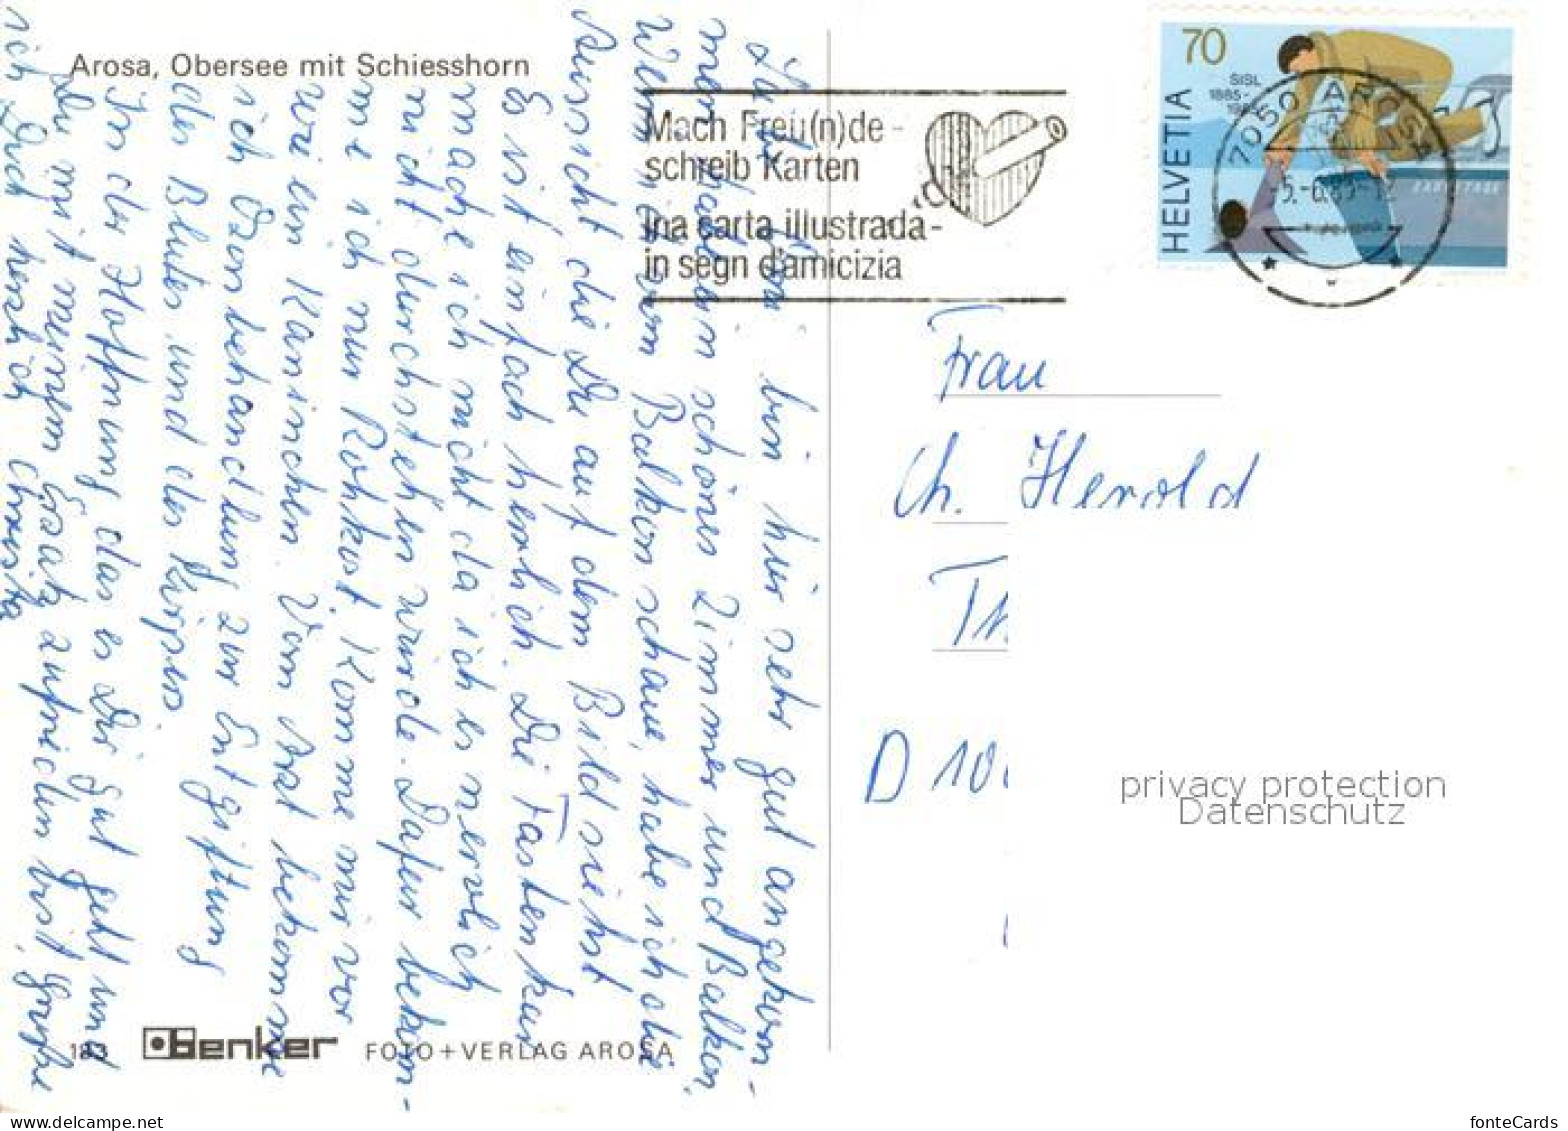 Arosa, Obersee mit Schiesshorn
Mach Freu(n)de-
schreib Karten
Ina carta illustrada-
in segn d'amicizia
70
SISL
1885-
HELVETIA
7050 AROSA
Liebe bin hier sehr gut angekom-
men habe ein schönes Zimmer und Balkon.
Wenn ich vom Balkon schaue, habe ich die
Aussicht die Du auf dem Bild siehst
Es ist einfach herrlich. Die Fastenkur
mache ich nicht da ich es nervlich
nicht durchstehen würde. Dafur bekom-
me ich nur Rohkost. Komme mir vor
wie ein Kaninchen. Vom Arzt bekomme
ich Ozonbehandlung zur Entgiftung
des Blutes und des Körpers
In der Hoffnung das es Dir gut geht und
Du mit meinem Ersatz zufrieden bist, grüße
ich Dich herzlich Christa
Frau
Ch. Herold
D 10
privacy protection
Datenschutz
183 benker FOTO+VERLAG AROSA
fonteCards
www.delcampe.net